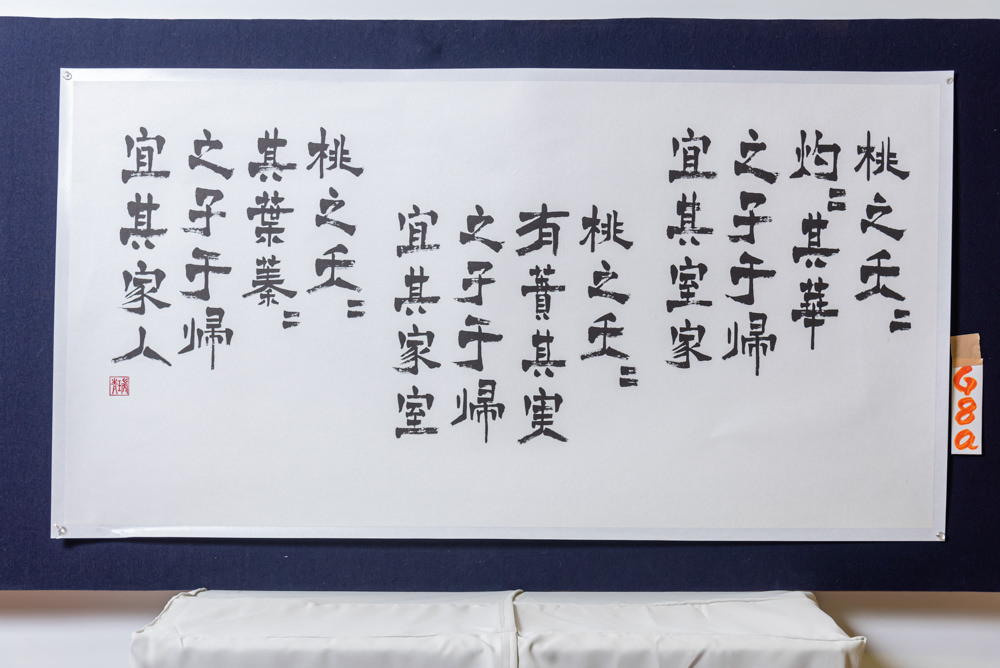 桃之夭〻
灼〻其華
之子于帰
宜其室家
桃之夭〻
有蕡其実
之子于帰
宜其家室
桃之夭〻
其葉蓁〻
之子于帰
宜其家人
G8a